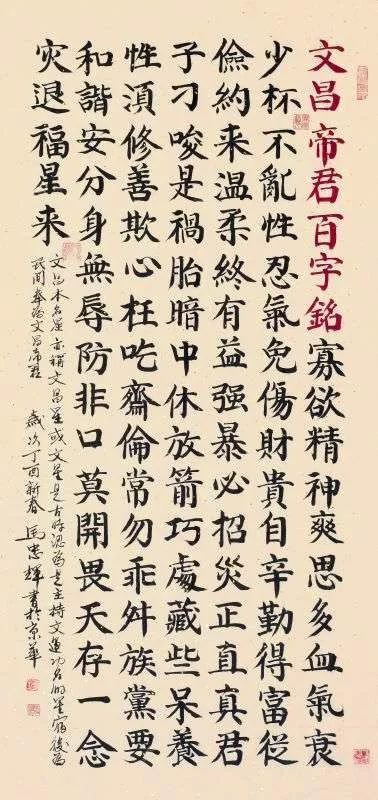 文昌帝君百字銘寡欲精神爽思多血氣衰
少杯不亂性忍氣免傷財貴自辛勤得富從
儉約来温柔終有益强暴必招災正直真君
子刁唆是禍胎暗中休放箭巧處藏些呆養
性湏修善欺心枉吃齋倫常勿乖舛族黨要
和諧安分身無辱防非口莫開畏天存一念
灾退福星来
文昌本名星亦稱文昌星或文星是古時認為是主持文運功名的星宿後為
民间奉為文昌帝君 歲次丁酉新春 馬忠輝書於京華